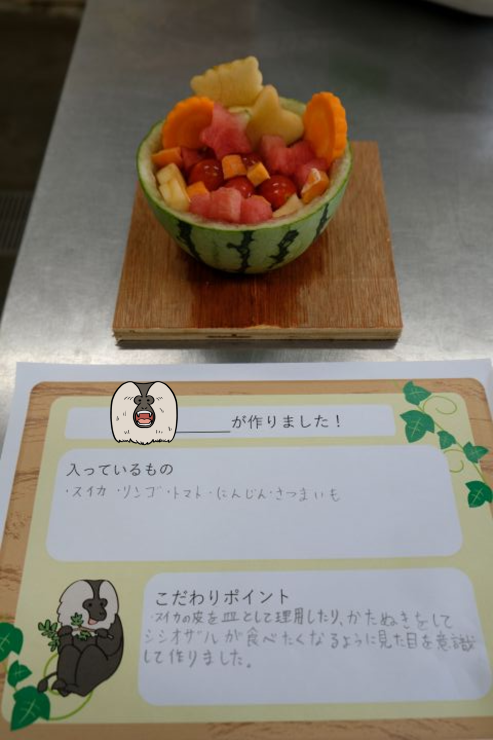 が作りました！
入っているもの
・スイカ ・リンゴ ・トマト ・にんじん ・さつまいも
こだわりポイント
・スイカの皮を皿として理用したり、かたぬきをして
シシオザルが食べたくなるように見た目を意識
して作りました。